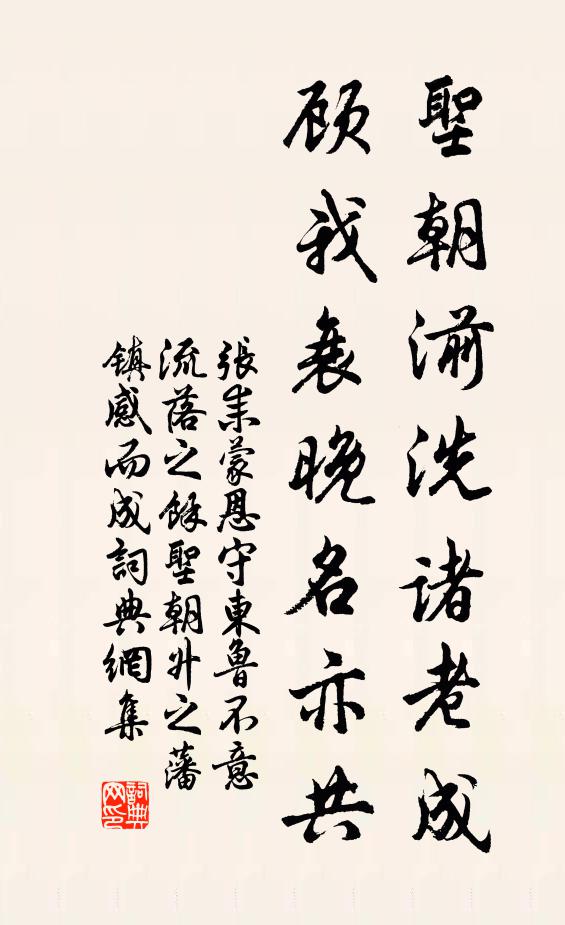 聖朝湔洗諸老成
顾我衰晚名亦共
張耒蒙恩守東魯不意
流落之餘聖朝升之藩
鎮感而成詞典網集
詞典
网印